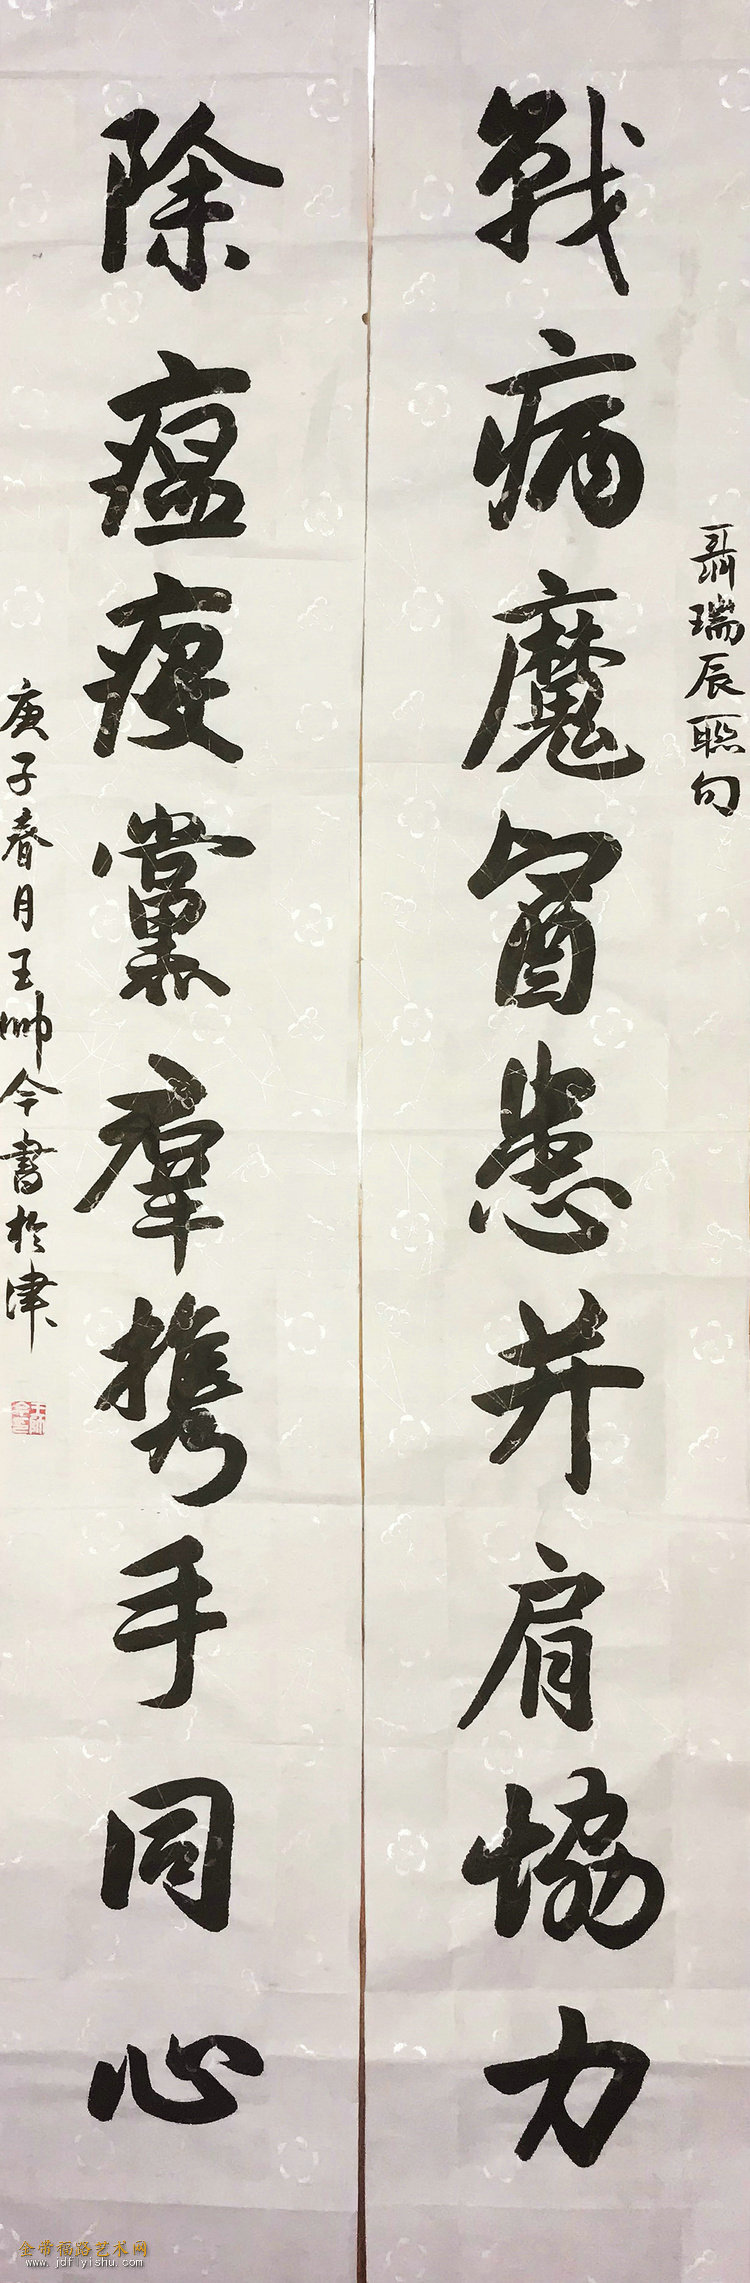 聶瑞辰聯句
戰病魔醫患并肩協力
除瘟疫黨羣携手同心
庚子春月王帥今書於津
金带福路艺术网
www.jdflyishu.com